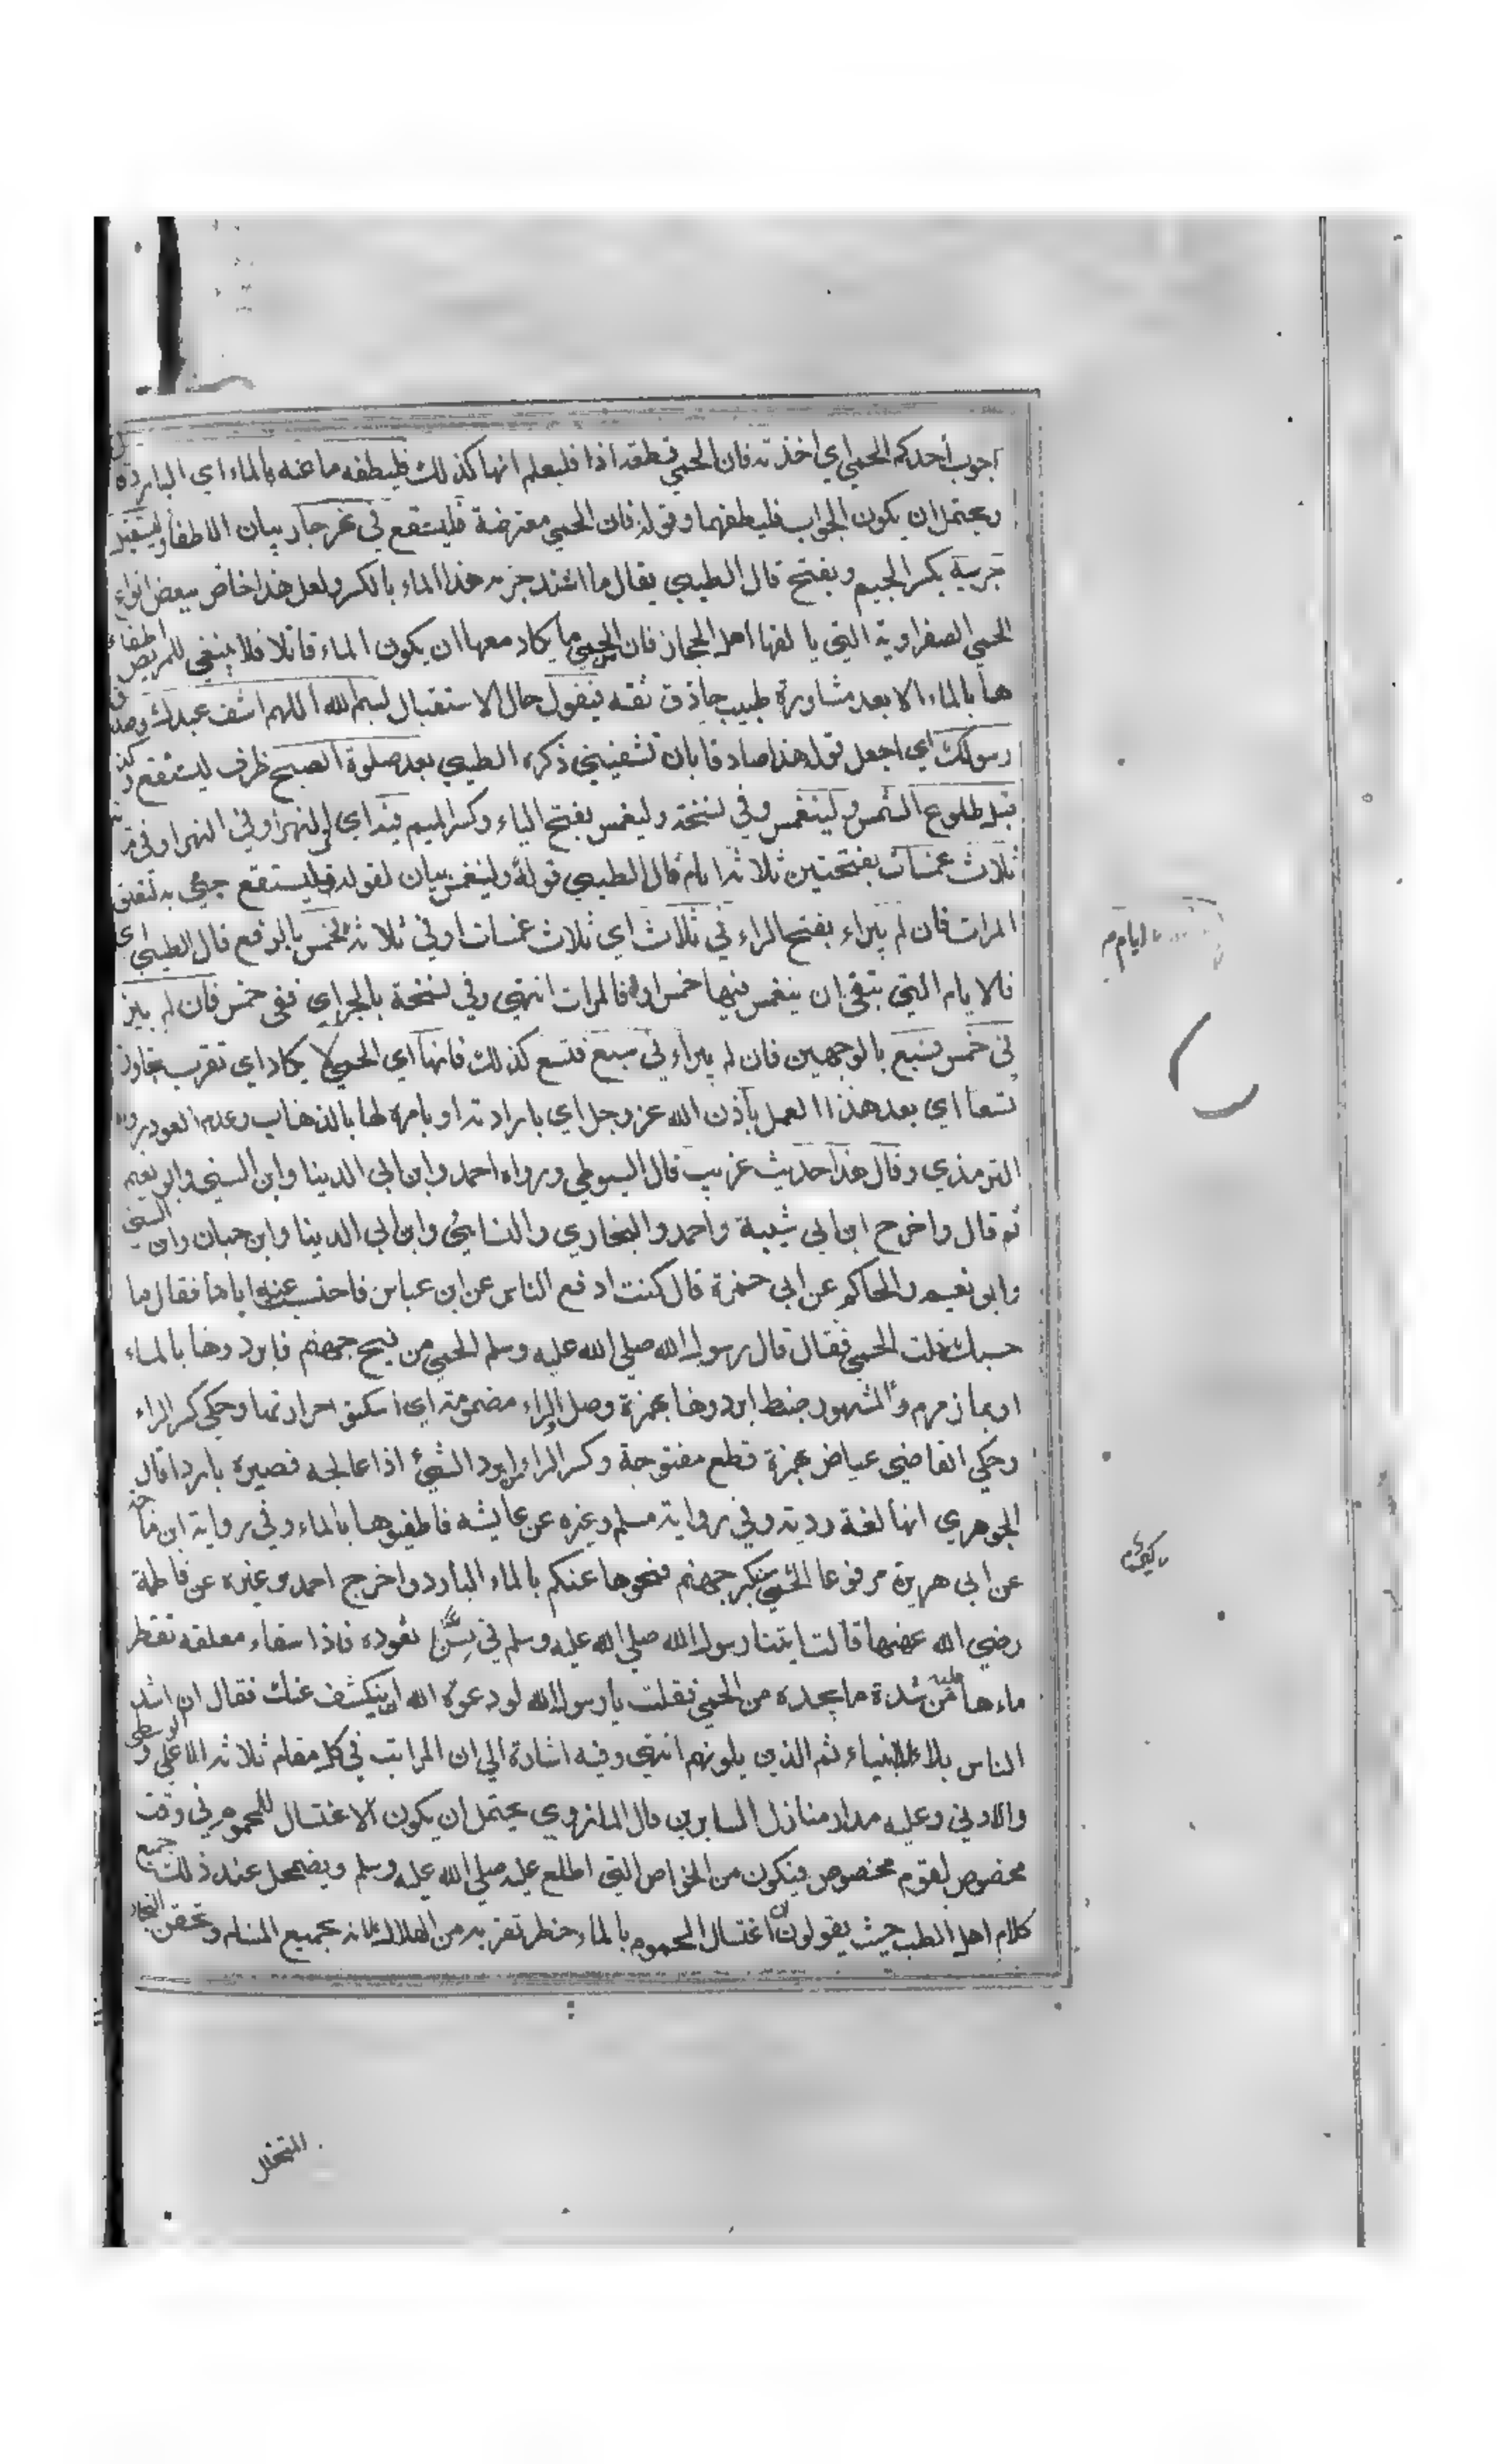 احدكم الحمي اي اخذته فان الحمي قطعة اذا فليعلم انها كذلك فليطفه ما عنه بالماء اي البارد
ويحتمل ان يكون الجواب فليطفها وقوله فان الحمي معترضة فليستقع في نهر جار بيان للاطفا وليستقبل
جريته بكسر الجيم ويفتح قال الطيبي يقال ما اشد جريه هذا الماء بالكسر ولعل هذا خاص ببعض انواع
الحمي الصفراوية التي يالفها اهل الحجاز فان من الحمي ما يكاد معها ان يكون الماء قاتلا فلا ينبغي للمريض اطفاء
ها بالماء الا بعد مشاورة طبيب حاذق ثقه فيقول حال الاستقبال بسم الله اللهم اشف عبدك وصدق
رسولك اي اجعل قوله هذا صادقا بان تشفيني ذكره الطيبي بعد صلوة الصبح ظرف ليستقع وكذا
قبل طلوع الشمس ولينغمس وفي نسخة وليغمس بفتح الياء وكسر الميم فيه اي في النهر او في
ثلاث غمسات بفتحتين ثلاثة ايام قال الطيبي قوله ولينغمس بيان لقوله فليستقع جيء به لتعلق
المرات فان لم يبراء بفتح الراء في ثلاث اي ثلاث غمسات او في ثلاثة فخمس بالرفع قال الطيبي اي
فالايام التي تبقى ان ينغمس فيها خمس او فالمرات انتهى وفي نسخة بالجر اي ففي خمس فان لم يبر
في خمس فسبع بالوجهين فان لم يبراء في سبع فتسع كذلك فانها اي الحمي لا يكاد اي تقرب تجاوز
تسعا اي بعد هذا العمل باذن الله عز وجل اي بارادته او بامره لها بالذهاب وعدم العود رواه
الترمذي وقال هذا حديث غريب قال السيوطي ورواه احمد وابن ابي الدنيا وابن السني وابو نعيم
ثم قال واخرج ابن ابي شيبة واحمد والبخاري والنسائي وابن ابي الدنيا وابن حبان وابن السني
وابو نعيم والحاكم عن ابي حمزة قال كنت ادفع الناس عن ابن عباس فاحتبست عنه اياما فقال ما
حبسك قلت الحمي فقال قال رسول الله صلي الله عليه وسلم الحمي من فيح جهنم فابردوها بالماء
او بماء زمزم والمشهور ضبط ابردوها بهمزة وصل والراء مضمومة اي اسكنوا حرارتها وحكي كسر الراء
وحكي القاضي عياض بهمزة قطع مفتوحة وكسر الراء من ابرد الشيئ اذا عالجه فصيره باردا قال
الجوهري انها لغة ردية وفي رواية مسلم وغيره عن عايشه فاطفيوها بالماء وفي رواية ابن ماجه
عن ابي هريرة مرفوعا الحمي من كير جهنم فنحوها عنكم بالماء البارد واخرج احمد وغيره عن فاطمة
رضي الله عنها قالت اتينا رسول الله صلي الله عليه وسلم في نساء نعوده فاذا سقاء معلقه تقطر
ماءها عليه من شدة ما يجده من الحمي فقلت يا رسول الله لو دعوة الله ان يكشف عنك فقال ان اشد
الناس بلاء الانبياء ثم الذين يلونهم انتهى وفيه اشارة الي ان المراتب في كل مقام ثلاثه الاعلي والوسطي
والادني وعليه مدار منازل السايرين قال المازوي يحتمل ان يكون الاغتسال للمحموم في وقت
مخصوص لقوم مخصوص فيكون من الخواص التي اطلع عليه صلي الله عليه وسلم ويضمحل عند ذلك جميع
كلام اهل الطب حيث يقولون ان اغتسال المحموم بالماء خطر تقربه من الهلاك لانه يجميع المسام وتحقن البخار
ايام
المتحلل